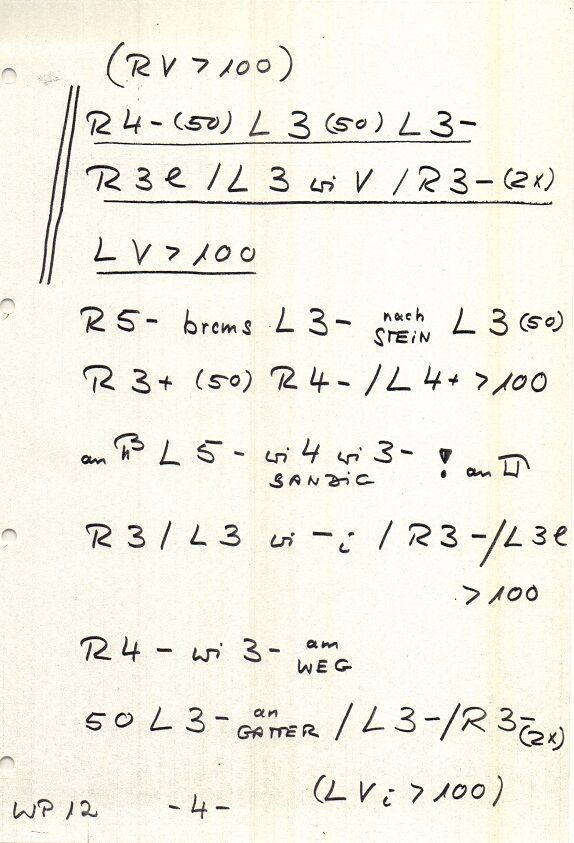 (RV > 100)
R4- (50) L3 (50) L3-
R3e / L3 wi V / R3- (2x)
LV > 100
R5- brems L3- nach STEIN L3 (50)
R3+ (50) R4- / L4+ > 100
an L5- wi 4 wi 3- ! an
SANDIG
R3 / L3 wi -i / R3- / L3e
> 100
R4- wi 3- am WEG
50 L3- an GATTER / L3- / R3- (2x)
(LVi > 100)
WP 12 -4-